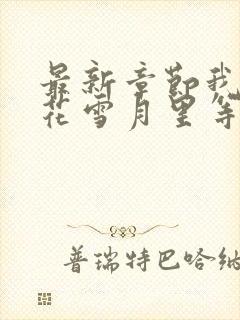 最新章节我
花雪月里等
普瑞特巴哈纳